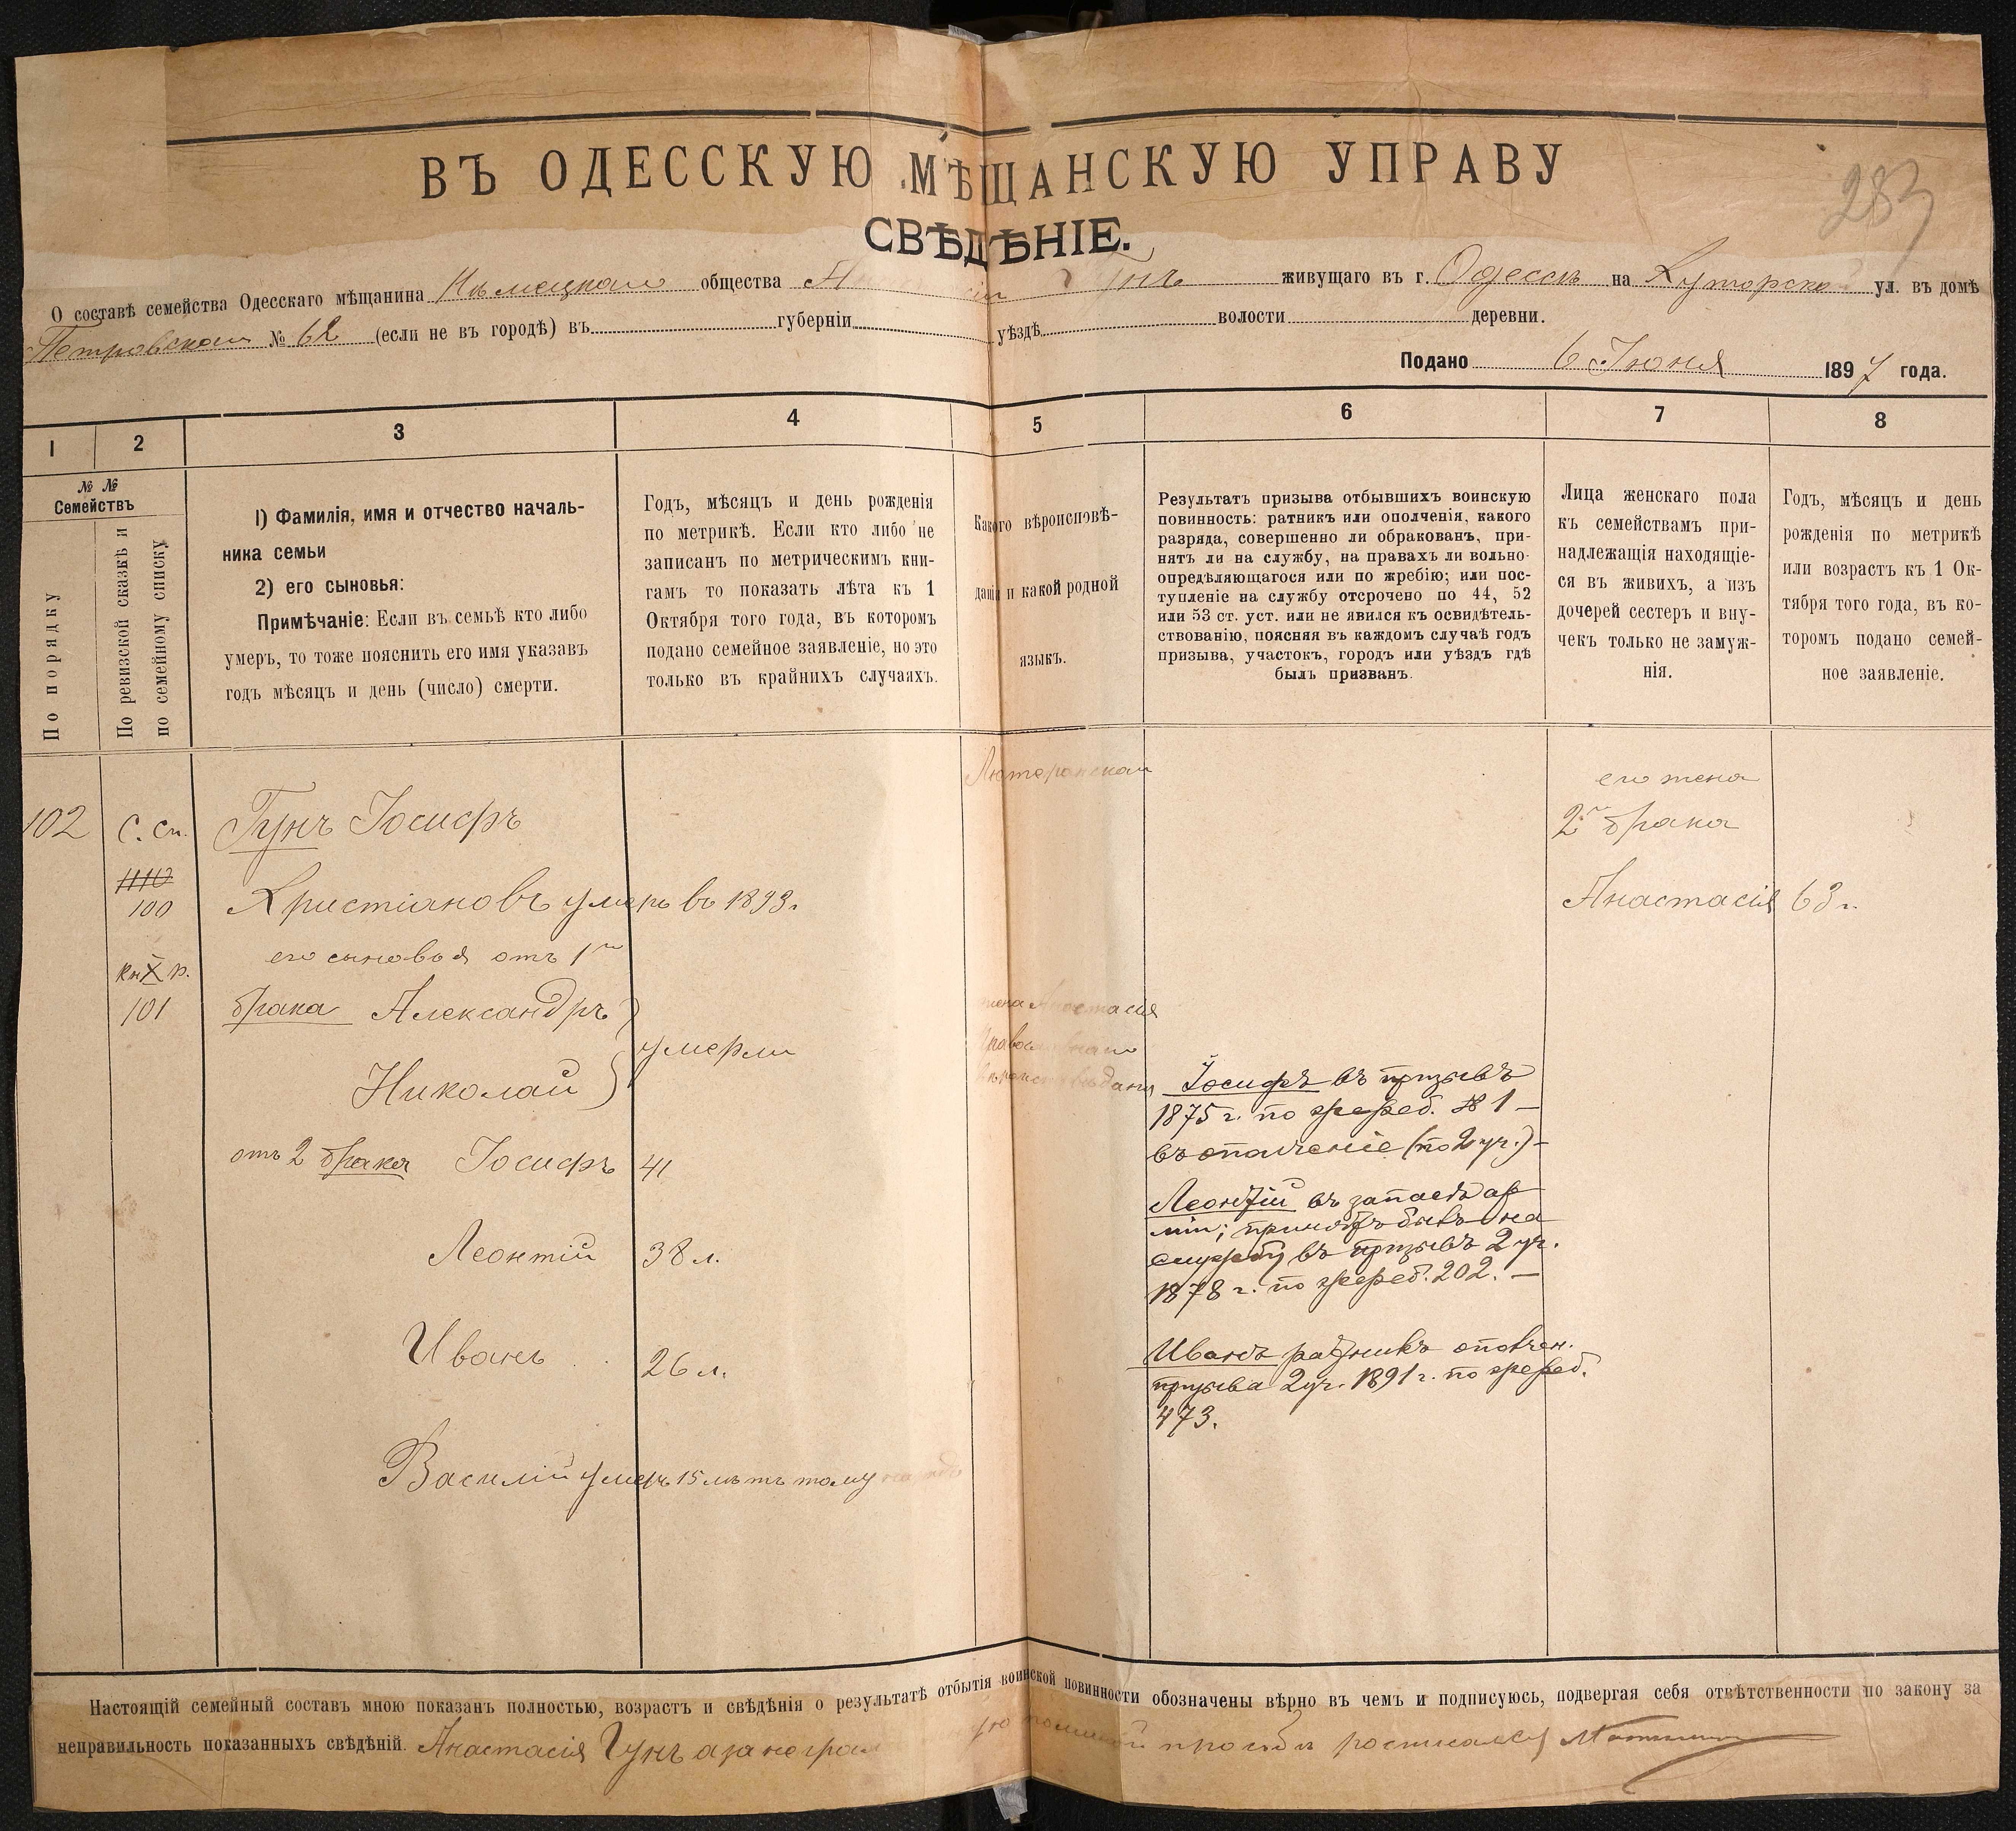 283
ВЪ ОДЕССКУЮ МѢЩАНСКУЮ УПРАВУ
СВѢДѢНІЕ.
О составѣ семейства Одесскаго мѣщанина Нѣмецкаго общества живущаго въ г. Одессѣ на Хуторской ул. въ домѣ
Петровскаго № 62 (если не въ городѣ) въ губерніи уѣздѣ волости деревни.
Подано 6 Іюня 1897 года.
1 2 3 4 5 6 7 8
№ № Семействъ
По порядку
По ревизской сказкѣ и
по семейному списку
1) Фамилія, имя и отчество началь-
ника семьи
2) его сыновья:
Примѣчаніе: Если въ семьѣ кто либо
умеръ, то тоже пояснить его имя указавъ
годъ мѣсяцъ и день (число) смерти.
Годъ, мѣсяцъ и день рожденія
по метрикѣ. Если кто либо не
записанъ по метрическимъ кни-
гамъ то показать лѣта къ 1
Октября того года, въ которомъ
подано семейное заявленіе, но это
только въ крайнихъ случаяхъ.
Какого вѣроисповѣ-
данія и какой родной
языкъ.
Результатъ призыва отбывшихъ воинскую
повинность: ратникъ или ополченія, какого
разряда, совершенно ли обракованъ, при-
нятъ ли на службу, на правахъ ли вольно-
опредѣляющагося или по жребію; или пос-
тупленіе на службу отсрочено по 44, 52
или 53 ст. уст. или не явился къ освидѣтель-
ствованію, поясняя въ каждомъ случаѣ годъ
призыва, участокъ, городъ или уѣздъ гдѣ
былъ призванъ.
Лица женскаго пола
къ семействамъ при-
надлежащія находящіе-
ся въ живихъ, а изъ
дочерей сестеръ и вну-
чекъ только не замуж-
нія.
Годъ, мѣсяцъ и день
рожденія по метрикѣ
или возрастъ къ 1 Ок-
тября того года, въ ко-
торомъ подано семей-
ное заявленіе.
102
С. Сп.
1110
100
кн X р.
101
Гунъ Іосифъ
Христіановъ умеръ въ 1893 г.
его сыновья отъ 1го
брака Александръ
Николай
умерли
отъ 2 брака Іосифъ 41
Леонтій 38 л.
Иванъ 26 л.
Василій умеръ 15 лѣтъ тому назадъ
Лютеранскаго
жена Анастасія
Православнаго
вѣроисповѣданія
Іосифъ въ призывѣ
1875 г. по жереб. № 1 –
въ ополченіе (по 2 уч.) –
Леонтій въ запасѣ ар
міи; принятъ былъ на
службу въ призывъ 2 уч.
1878 г. по жереб. 202. –
Иванъ ратникъ ополчен.
призыва 2 уч. 1891 г. по жереб.
473.
его жена
2го брака
Анастасія 63 г.
Настоящій семейный составъ мною показанъ полностью, возрастъ и свѣдѣнія о результатѣ отбытія воинской повинности обозначены вѣрно въ чемъ и подписуюсь, подвергая себя отвѣтственности по закону за
неправильность показанныхъ свѣдѣній. Анастасія Гунъ а за неграмотную по личной просьбѣ росписался